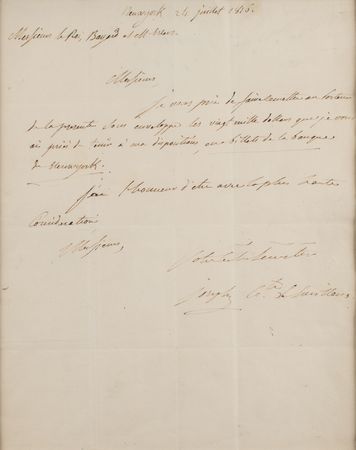 Newyork 24 juillet 1816.
Messieurs le Roy, Bayard et M.
Messieurs
je vous prie de faire remettre au porteur
de la presente sous enveloppe les vingt mille dollars que je vous
ai prié de tenir à ma disposition, en billets de la banque
de Newyork.
j'ai l'honneur d'être avec la plus haute
Consideration
Messieurs,
Votre
joseph Cte de Survilliers